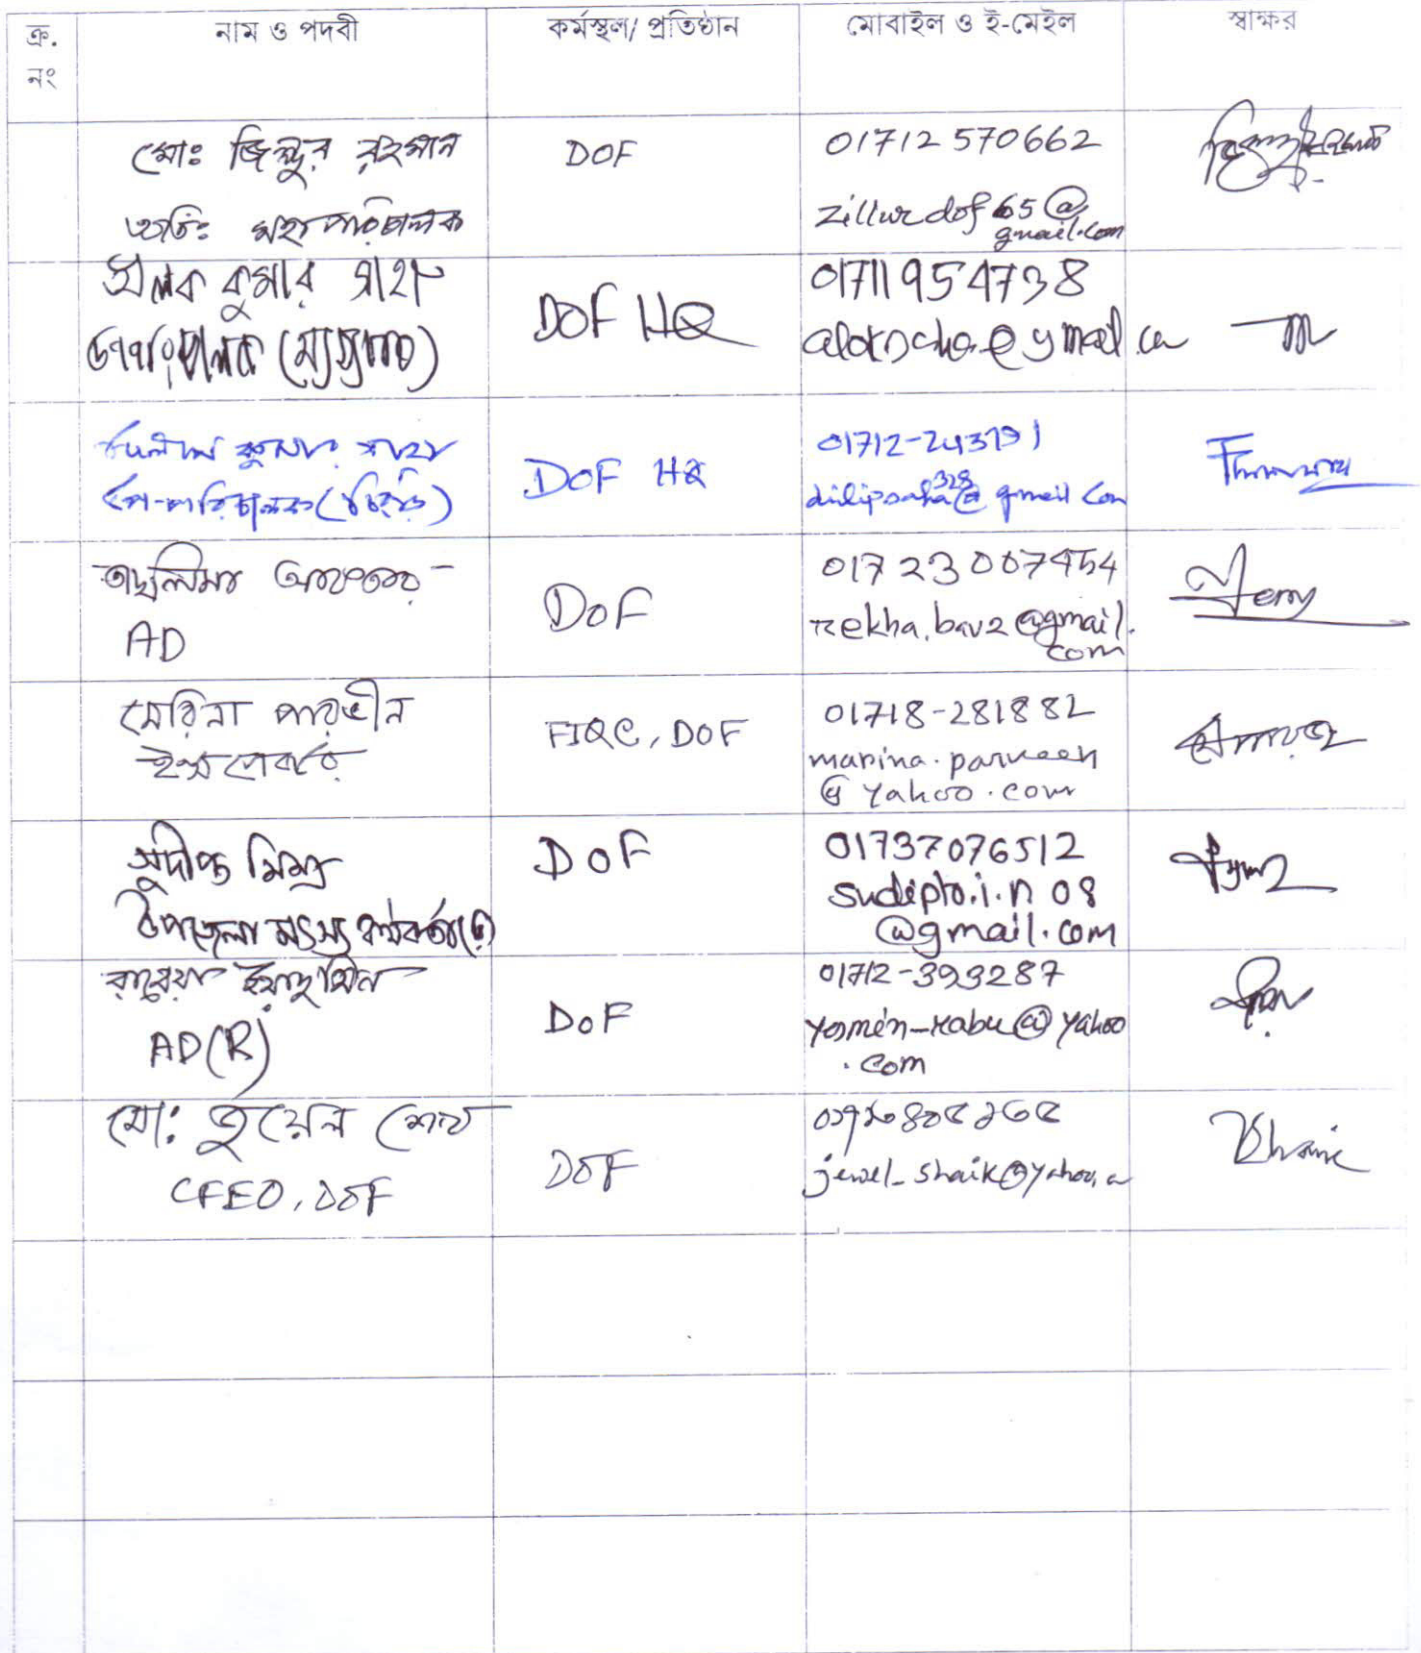 ক্র. নং
নাম ও পদবী
কর্মস্থল/ প্রতিষ্ঠান
মোবাইল ও ই-মেইল
স্বাক্ষর
মোঃ জিল্লুর রহমান
অতিঃ মহাপরিচালক
DOF
01712 570662
zillurdof65@
gmail.com
অলক কুমার সাহা
উপপরিচালক
DOF HQ
01711954738
কুমার সাহা
উপ-পরিচালক
DOF HQ
01712-243791
dilipsaha328@gmail com
তাছলিমা আকতার
AD
DoF
rekha.bau2@gmail.
com
মেরিনা পারভীন
ইন্সপেক্টর
FIQC, DOF
01718-281882
marina.parveen
@yahoo.com
সুদীপ্ত মিশ্র
উপজেলা মৎস্য কর্মকর্তা
DoF
01737076512
sudipto.i.n 08
@gmail.com
রাবেয়া ইয়াসমিন
AD(R)
DoF
01712-393287
yasmin-rabu@yahoo
.com
মো: জুয়েল শেখ
CFEO, DOF
DOF
jewel_shaik@yahoo.